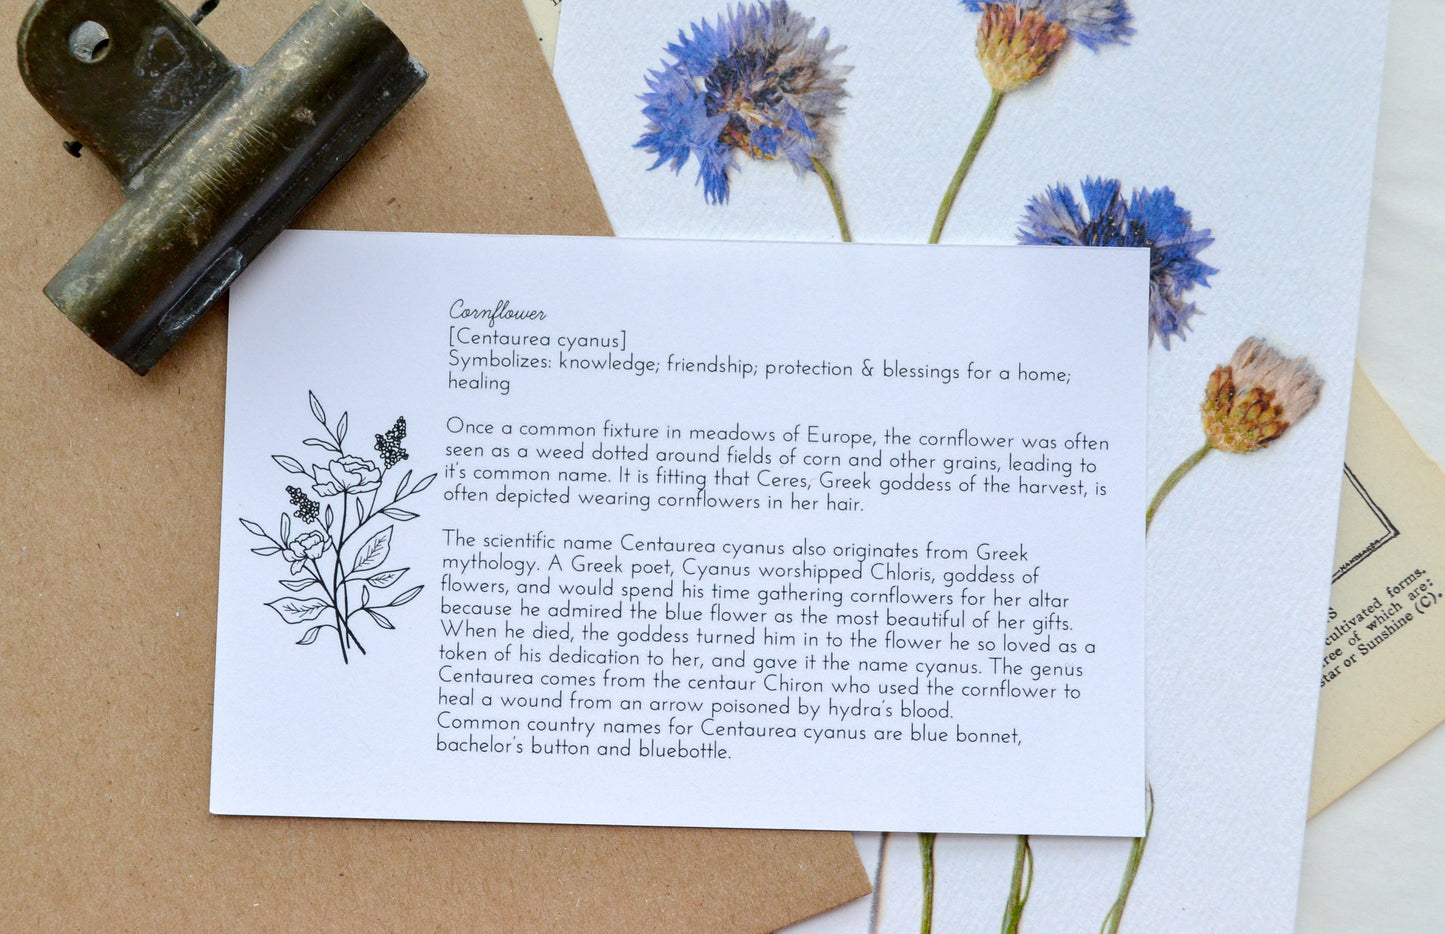 Cornflower
[Centaurea cyanus]
Symbolizes: knowledge; friendship; protection & blessings for a home;
healing
Once a common fixture in meadows of Europe, the cornflower was often
seen as a weed dotted around fields of corn and other grains, leading to
it's common name. It is fitting that Ceres, Greek goddess of the harvest, is
often depicted wearing cornflowers in her hair.
The scientific name Centaurea cyanus also originates from Greek
mythology. A Greek poet, Cyanus worshipped Chloris, goddess of
flowers, and would spend his time gathering cornflowers for her altar
because he admired the blue flower as the most beautiful of her gifts.
When he died, the goddess turned him in to the flower he so loved as a
token of his dedication to her, and gave it the name cyanus. The genus
Centaurea comes from the centaur Chiron who used the cornflower to
heal a wound from an arrow poisoned by hydra's blood.
Common country names for Centaurea cyanus are blue bonnet,
bachelor's button and bluebottle.
cultivated forms.
of which are:
star or Sunshine (C).